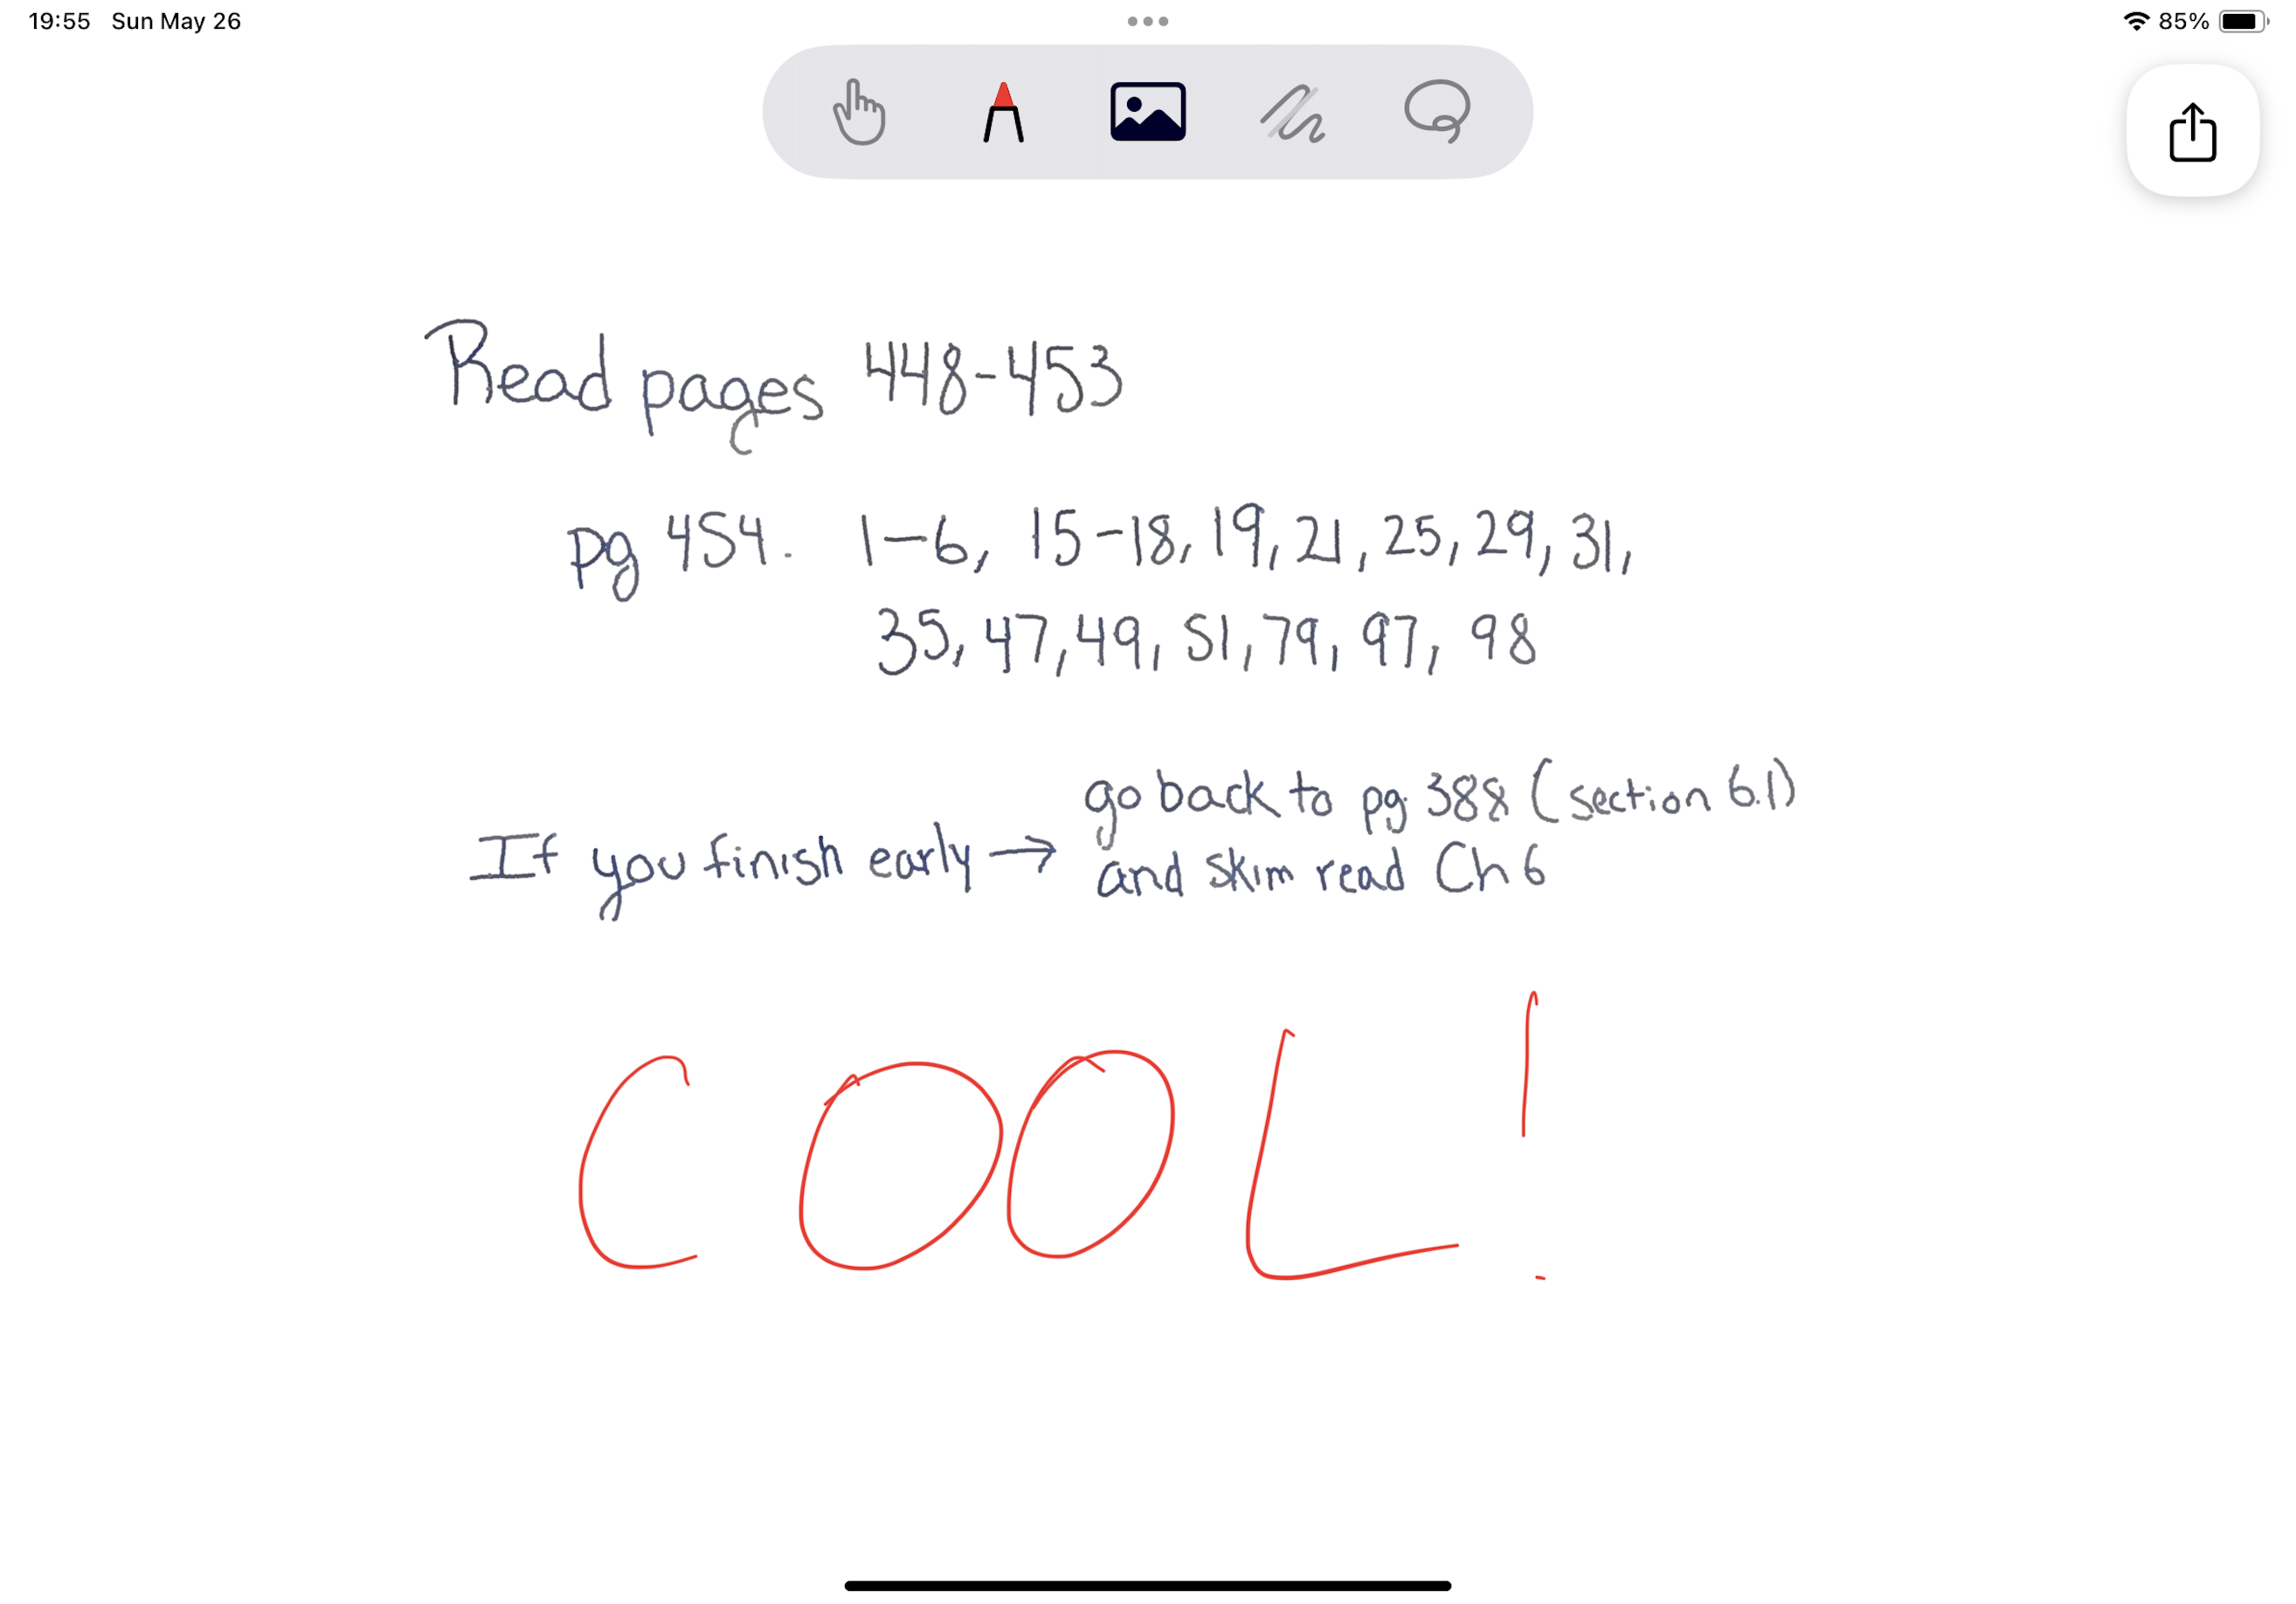 19:55 Sun May 26 85%
Read pages 448-453
pg 454. 1-6, 15-18, 19, 21, 25, 29, 31,
35, 47, 49, 51, 79, 97, 98
If you finish early → go back to pg. 388 (section 6.1)
and skim read Ch 6
COOL!